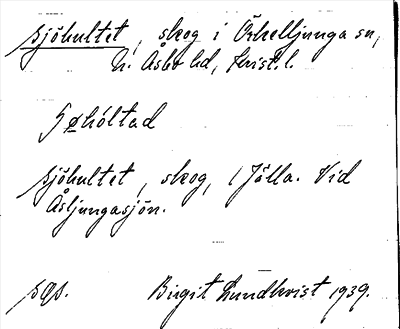 Sjöhultet, skog i Örkelljunga sn,
N. Åsbo hd, Krist. l.
Sjöhultet, skog, i Jälla. Vid
Åsljungasjön.
Birgit Lundkvist 1939.